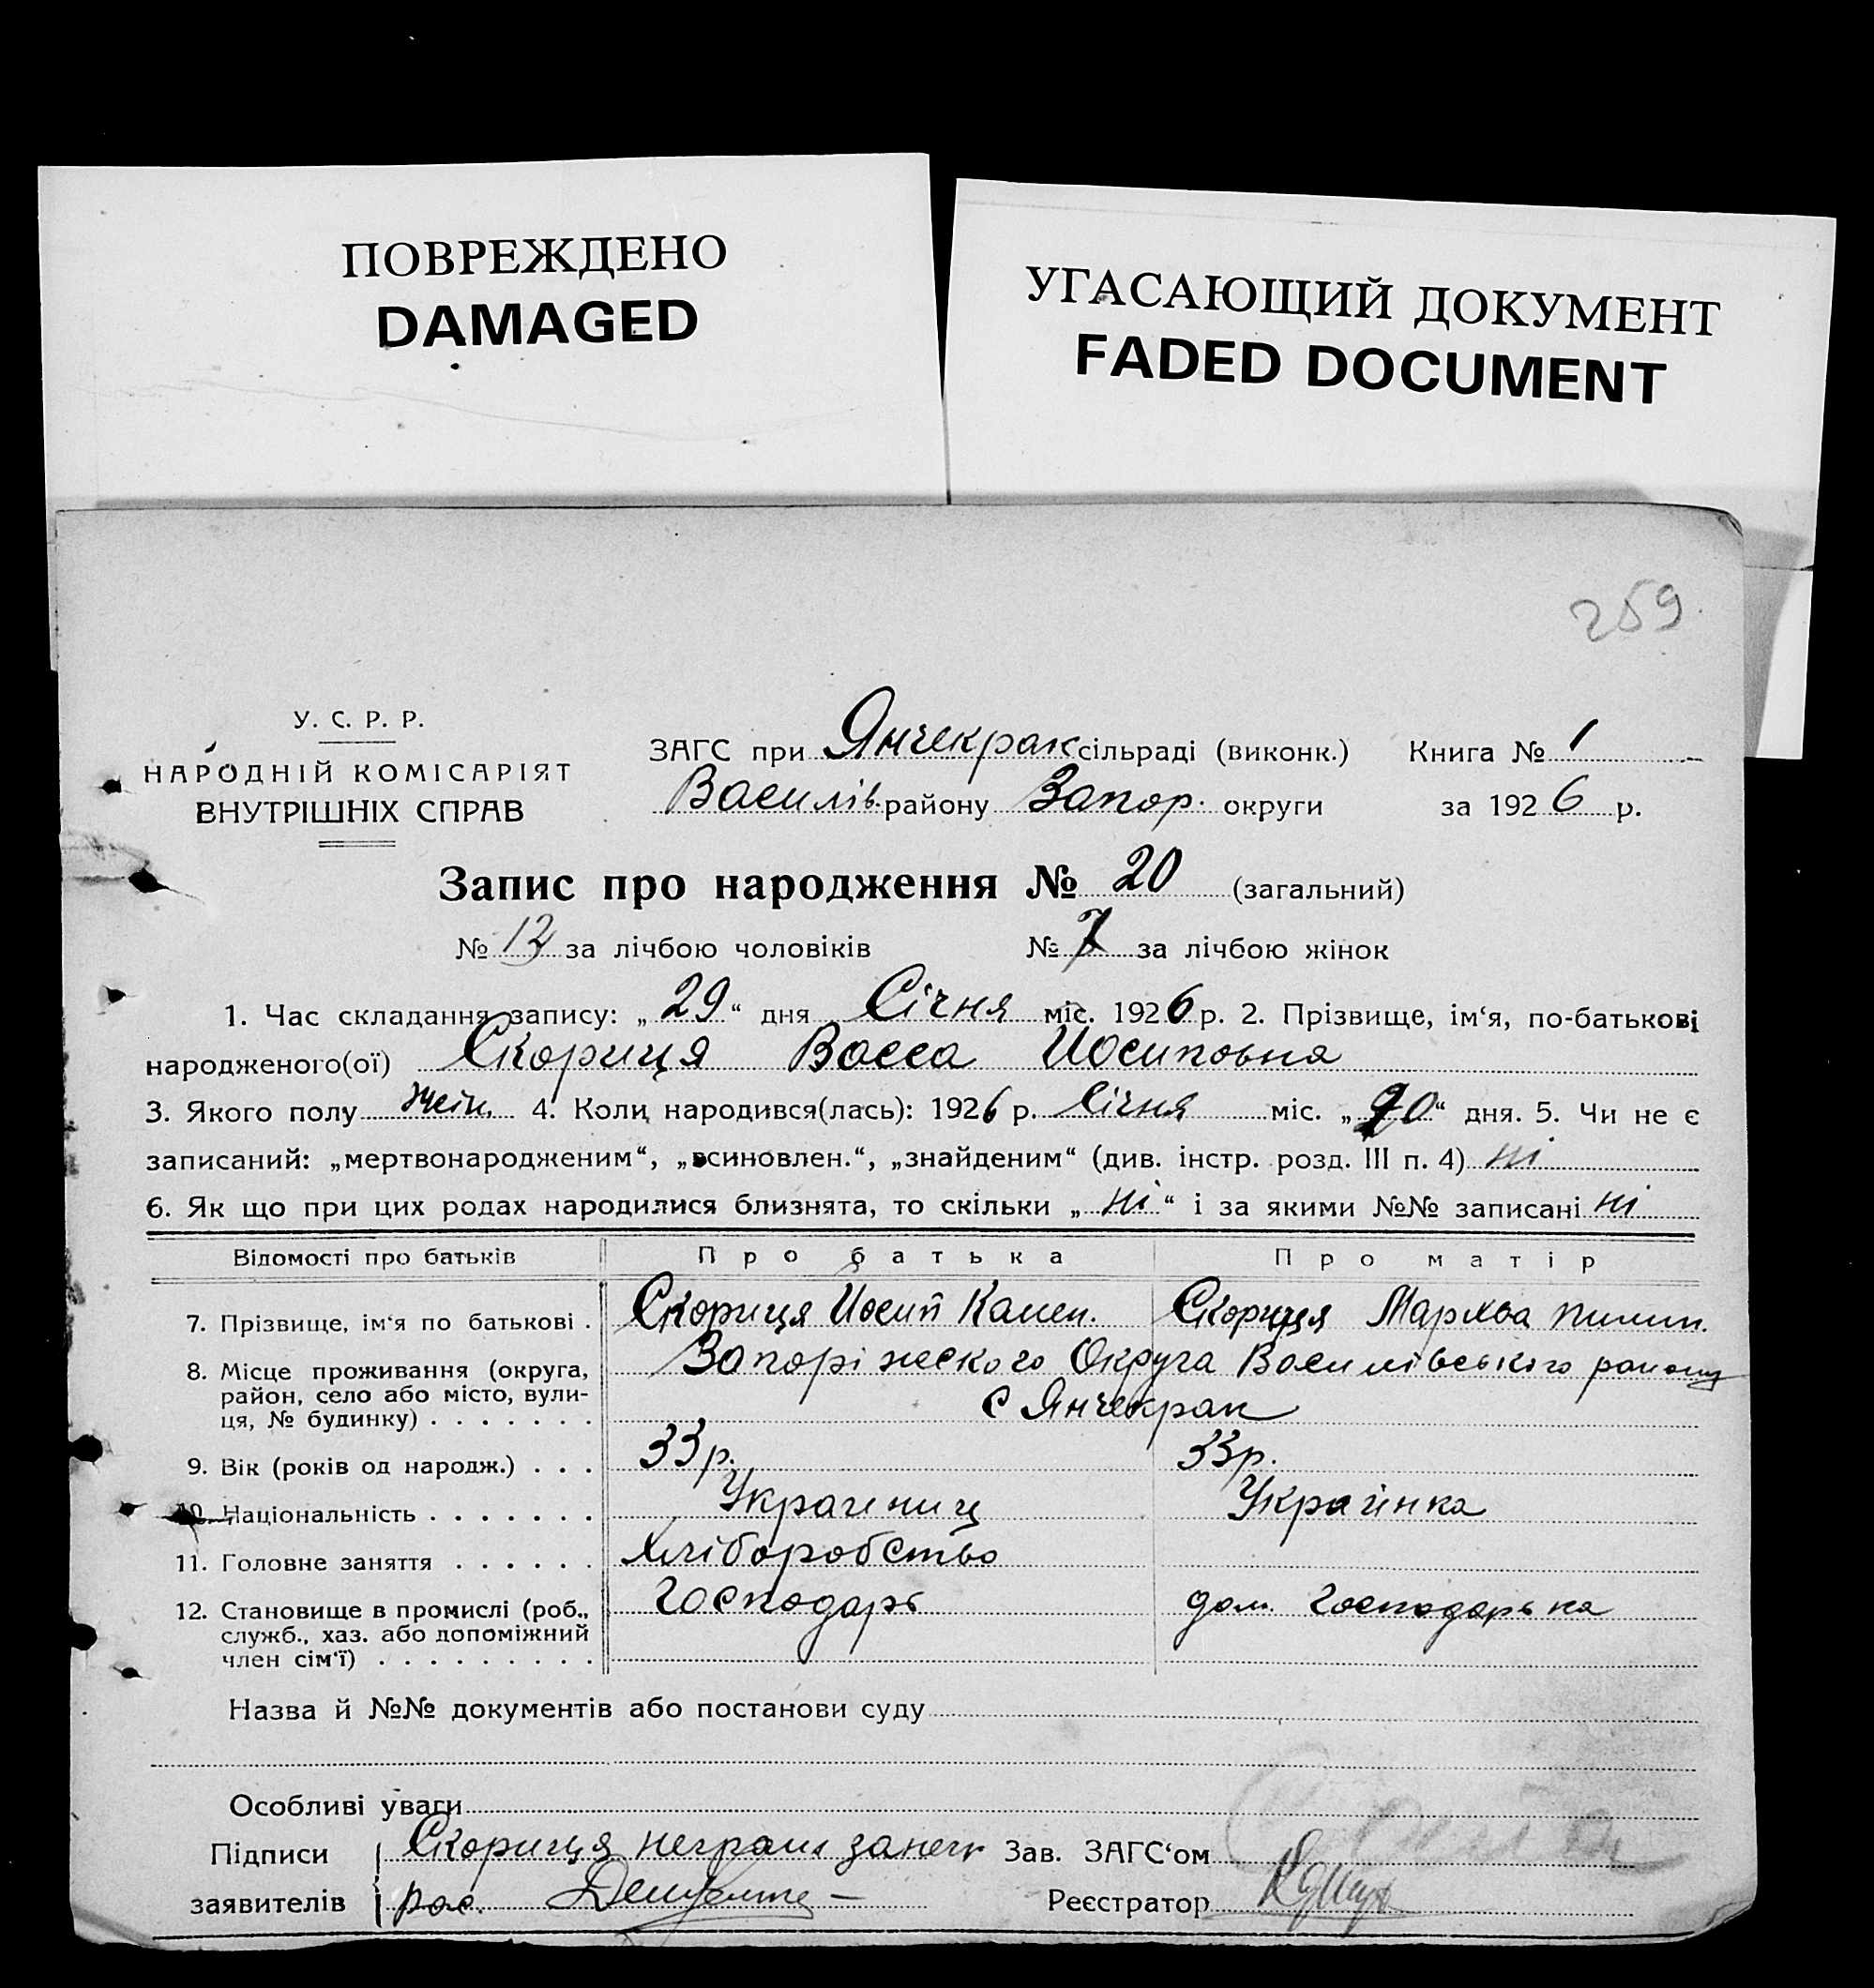 ПОВРЕЖДЕНО
DAMAGED
УГАСАЮЩИЙ ДОКУМЕНТ
FADED DOCUMENT
259
У. С. Р. Р.
НАРОДНІЙ КОМІСАРІЯТ
ВНУТРІШНІХ СПРАВ
ЗАГС при Янчекрак сільраді (виконк.) Книга № 1
Василів. району Запор. округи за 1926 р.
Запис про народження № 20 (загальний)
№ 13 за лічбою чоловіків № 7 за лічбою жінок
1. Час складання запису: „29“ дня Січня міс. 1926 р. 2. Прізвище, ім‘я, по-батькові
народженого(ої) Скориця Васса Йосиповна
3. Якого полу жін. 4. Коли народився(лась): 1926 р. Січня міс. „20“ дня. 5. Чи не є
записаний: „мертвонародженим“, „всиновлен.“, „знайденим“ (див. інстр. розд. III п. 4) ні
6. Як що при цих родах народилися близнята, то скільки „ні“ і за якими №№ записані ні
Відомості про батьків Про батька Про матір
7. Прізвище, ім‘я по батькові . Скориця Йосип Скориця Мархва Пилип.
8. Місце проживання (округа, Запоріжского Округа Василівського району
район, село або місто, вули-
ця, № будинку) . . . . . . . с Янчекрак
9. Вік (років од народж.) . . . 33 р. 33 р.
10. Національність . . . . . . . Українец Українка
11. Головне заняття . . . . . . Хліборобство
12. Становище в промислі (роб., Господарь дом. господарька
служб., хаз. або допоміжний
член сім‘ї) . . . . . . . . .
Назва й №№ документів або постанови суду
Особливі уваги
Підписи Скориця неграм за Зав. ЗАГС‘ом
заявителів рос. Реєстратор